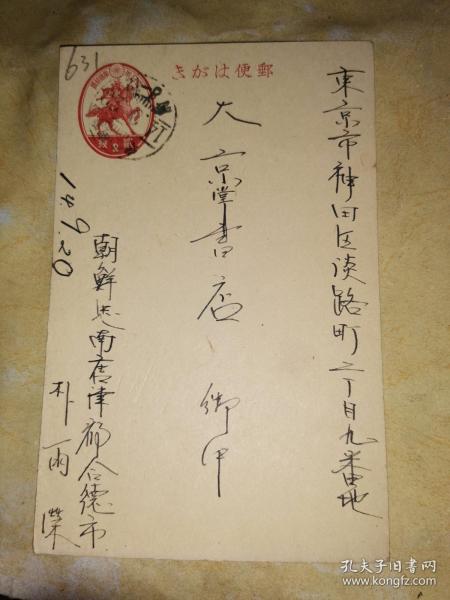 郵便はがき
631
東京市神田区淡路町二丁目九番地
大京堂書店 御中
14.9.20
朝鮮忠南唐津郡合徳市
朴雨榮
孔夫子旧书网
www.kongfz.com